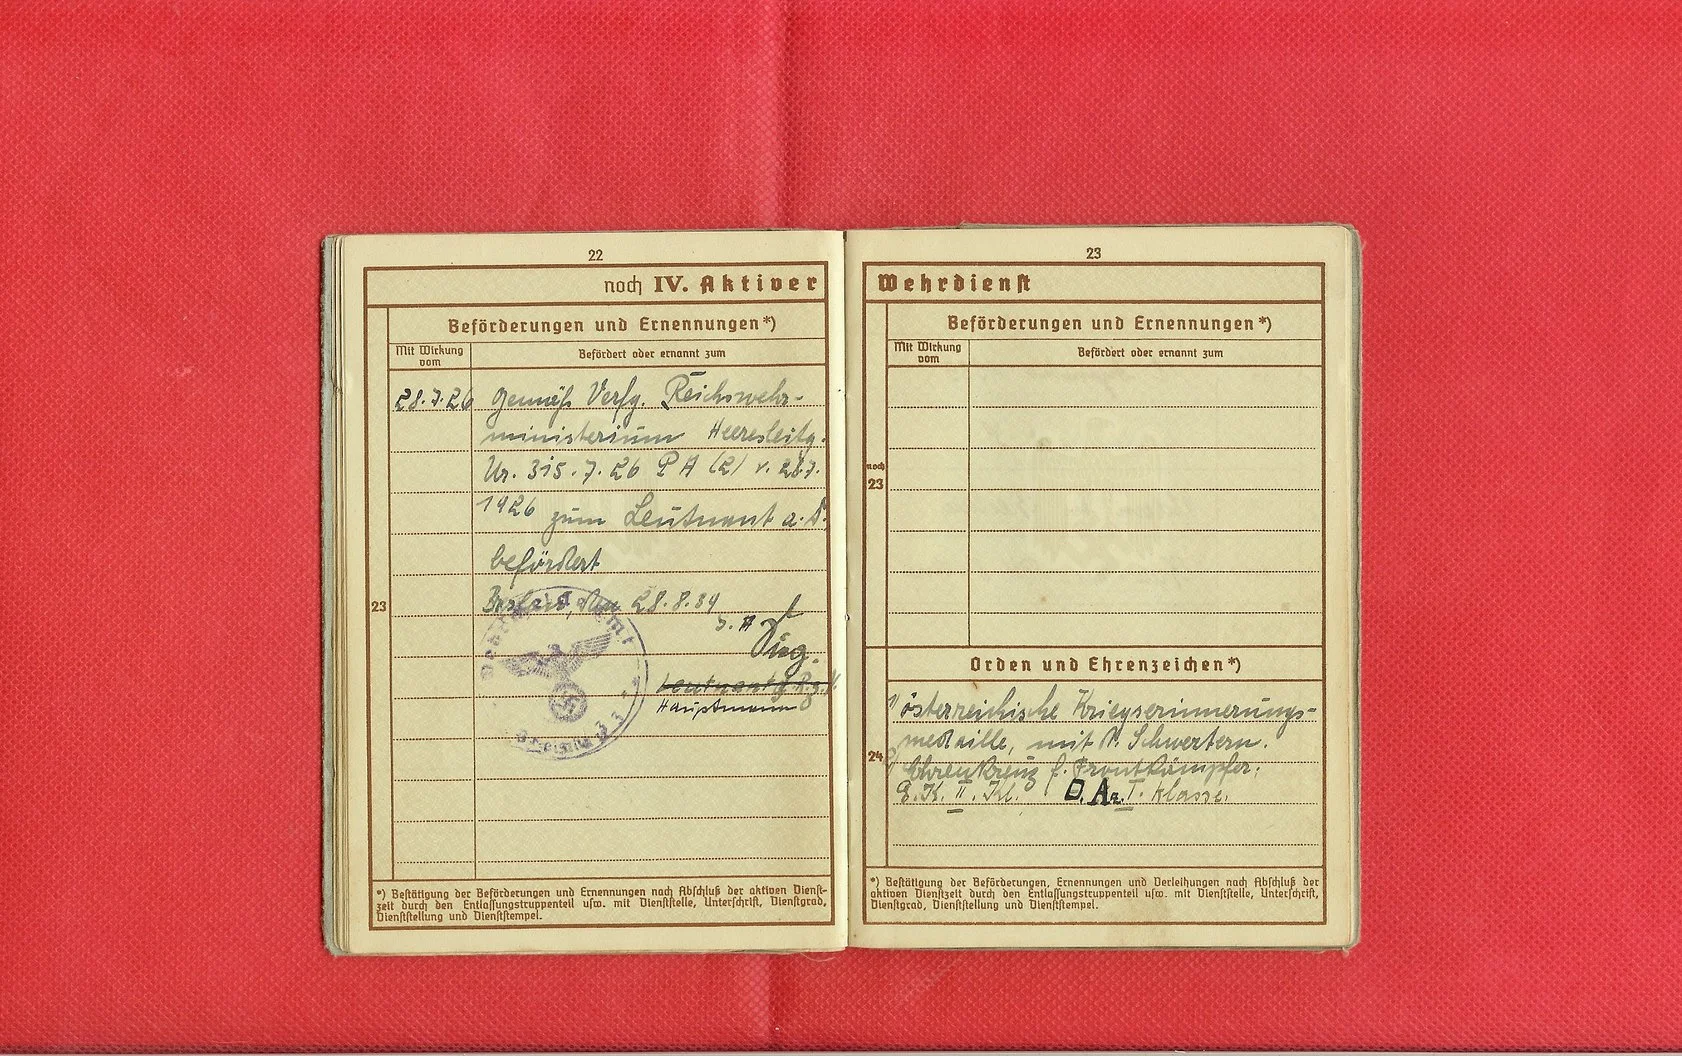 22
noch IV. Aktiver
Beförderungen und Ernennungen*)
Mit Wirkung vom
Befördert oder ernannt zum
28.7.26 gemäß Verfg. Reichswehr-
ministerium Heeresleitg.
Nr. 315.7.26 P A (2) v. 28.7.
1926 zum Leutnant a. D.
befördert
23
den 28.8.39
Leutnant
Hauptmann
*) Bestätigung der Beförderungen und Ernennungen nach Abschluß der aktiven Dienst-
zeit durch den Entlassungstruppenteil usw. mit Dienststelle, Unterschrift, Dienstgrad,
Dienststellung und Dienststempel.
23
Wehrdienst
Beförderungen und Ernennungen*)
Mit Wirkung vom
Befördert oder ernannt zum
noch
23
Orden und Ehrenzeichen*)
24
1) österreichische Kriegserinnerungs-
medaille, mit Schwertern.
Ehrenkreuz f. Frontkämpfer.
E.K. II. Kl. D. Az. I. Klasse.
*) Bestätigung der Beförderungen, Ernennungen und Verleihungen nach Abschluß der
aktiven Dienstzeit durch den Entlassungstruppenteil usw. mit Dienststelle, Unterschrift,
Dienstgrad, Dienststellung und Dienststempel.